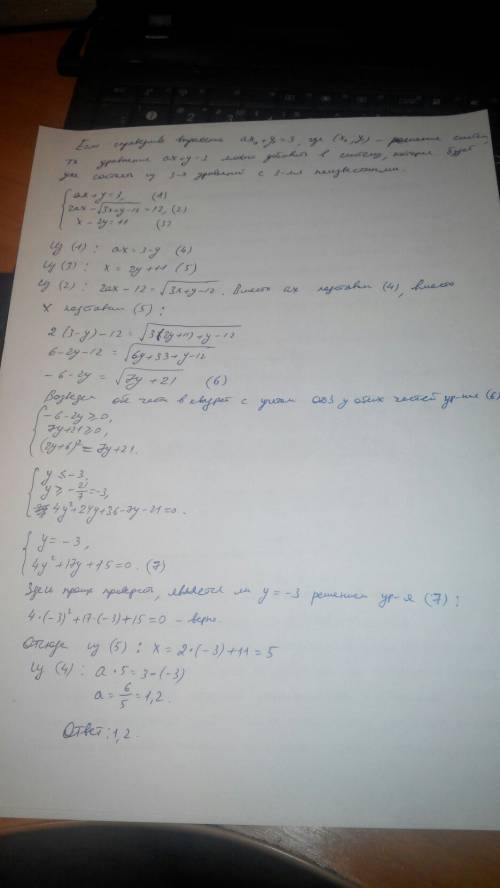 Если справедливо выражение ax₀+y₀=3, где (x₀, y₀) – решение системы,
то уравнение ax+y=3 можно добавить в систему, которая будет
уже состоять из 3-х уравнений с 3-мя неизвестными.
{ ax+y=3, (1)
2ax-√(3x+y-12)=12, (2)
x-2y=11 (3)
Из (1): ax=3-y (4)
Из (3): x=2y+11 (5)
Из (2): 2ax-12=√(3x+y-12). Вместо ax подставим (4), вместо
x подставим (5):
2(3-y)-12=√(3(2y+11)+y-12)
6-2y-12=√(6y+33+y-12)
-6-2y=√(7y+21) (6)
Возведем обе части в квадрат с учётом ОДЗ у обеих частей ур-ния (6)
{ -6-2y≥0,
7y+21≥0,
(2y+6)²=7y+21.
{ y≤-3,
y≥-21/7=-3,
4y²+24y+36-7y-21=0.
{ y=-3,
4y²+17y+15=0. (7)
Здесь проще проверить, является ли y=-3 решением ур-я (7):
4·(-3)²+17·(-3)+15=0 – верно.
Отсюда из (5): x=2·(-3)+11=5
Из (4): a·5=3-(-3)
a=6/5=1,2.
Ответ: 1,2.